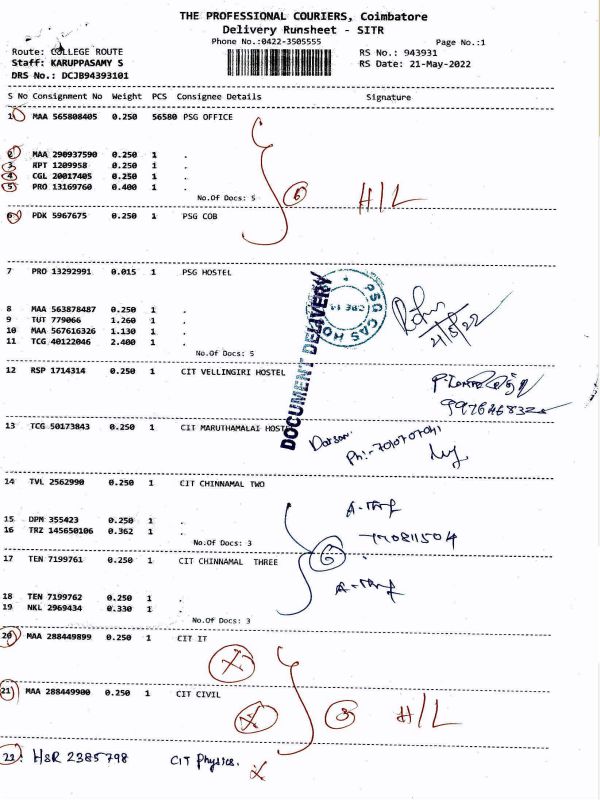 THE PROFESSIONAL COURIERS, Coimbatore
Delivery Runsheet - SITR
Phone No.:0422-3505555 Page No.:1
Route: COLLEGE ROUTE RS No.: 943931
Staff: KARUPPASAMY S RS Date: 21-May-2022
DRS No.: DCJB94393101
S No Consignment No Weight PCS Consignee Details Signature
1 MAA 565808405 0.250 56580 PSG OFFICE
2 MAA 290937590 0.250 1 .
3 KPT 1209958 0.250 1 .
4 CGL 20017405 0.250 1 .
5 PRO 13169760 0.400 1 .
6 H/L
No.Of Docs: 5
6 PDK 5967675 0.250 1 PSG COB
7 PRO 13292991 0.015 1 PSG HOSTEL
PSG CAS HO
CBE 14
DOCUMENT DELIVERY
8 MAA 563878487 0.250 1 .
9 TUT 779066 1.260 1 .
10 MAA 567616326 1.130 1 .
11 TCG 40122046 2.400 1 .
21/5/22
No.Of Docs: 5
12 RSP 1714314 0.250 1 CIT VELLINGIRI HOSTEL
13 TCG 50173843 0.250 1 CIT MARUTHAMALAI HOSTEL
14 TVL 2562990 0.250 1 CIT CHINNAMAL TWO
15 DPM 355423 0.250 1 .
16 TRZ 145650106 0.362 1 .
No.Of Docs: 3
6
17 TEN 7199761 0.250 1 CIT CHINNAMAL THREE
18 TEN 7199762 0.250 1 .
19 NKL 2969434 0.330 1 .
No.Of Docs: 3
20 MAA 288449899 0.250 1 CIT IT
21 MAA 288449900 0.250 1 CIT CIVIL
3 H/L
HSR 2385798 CIT Physics.